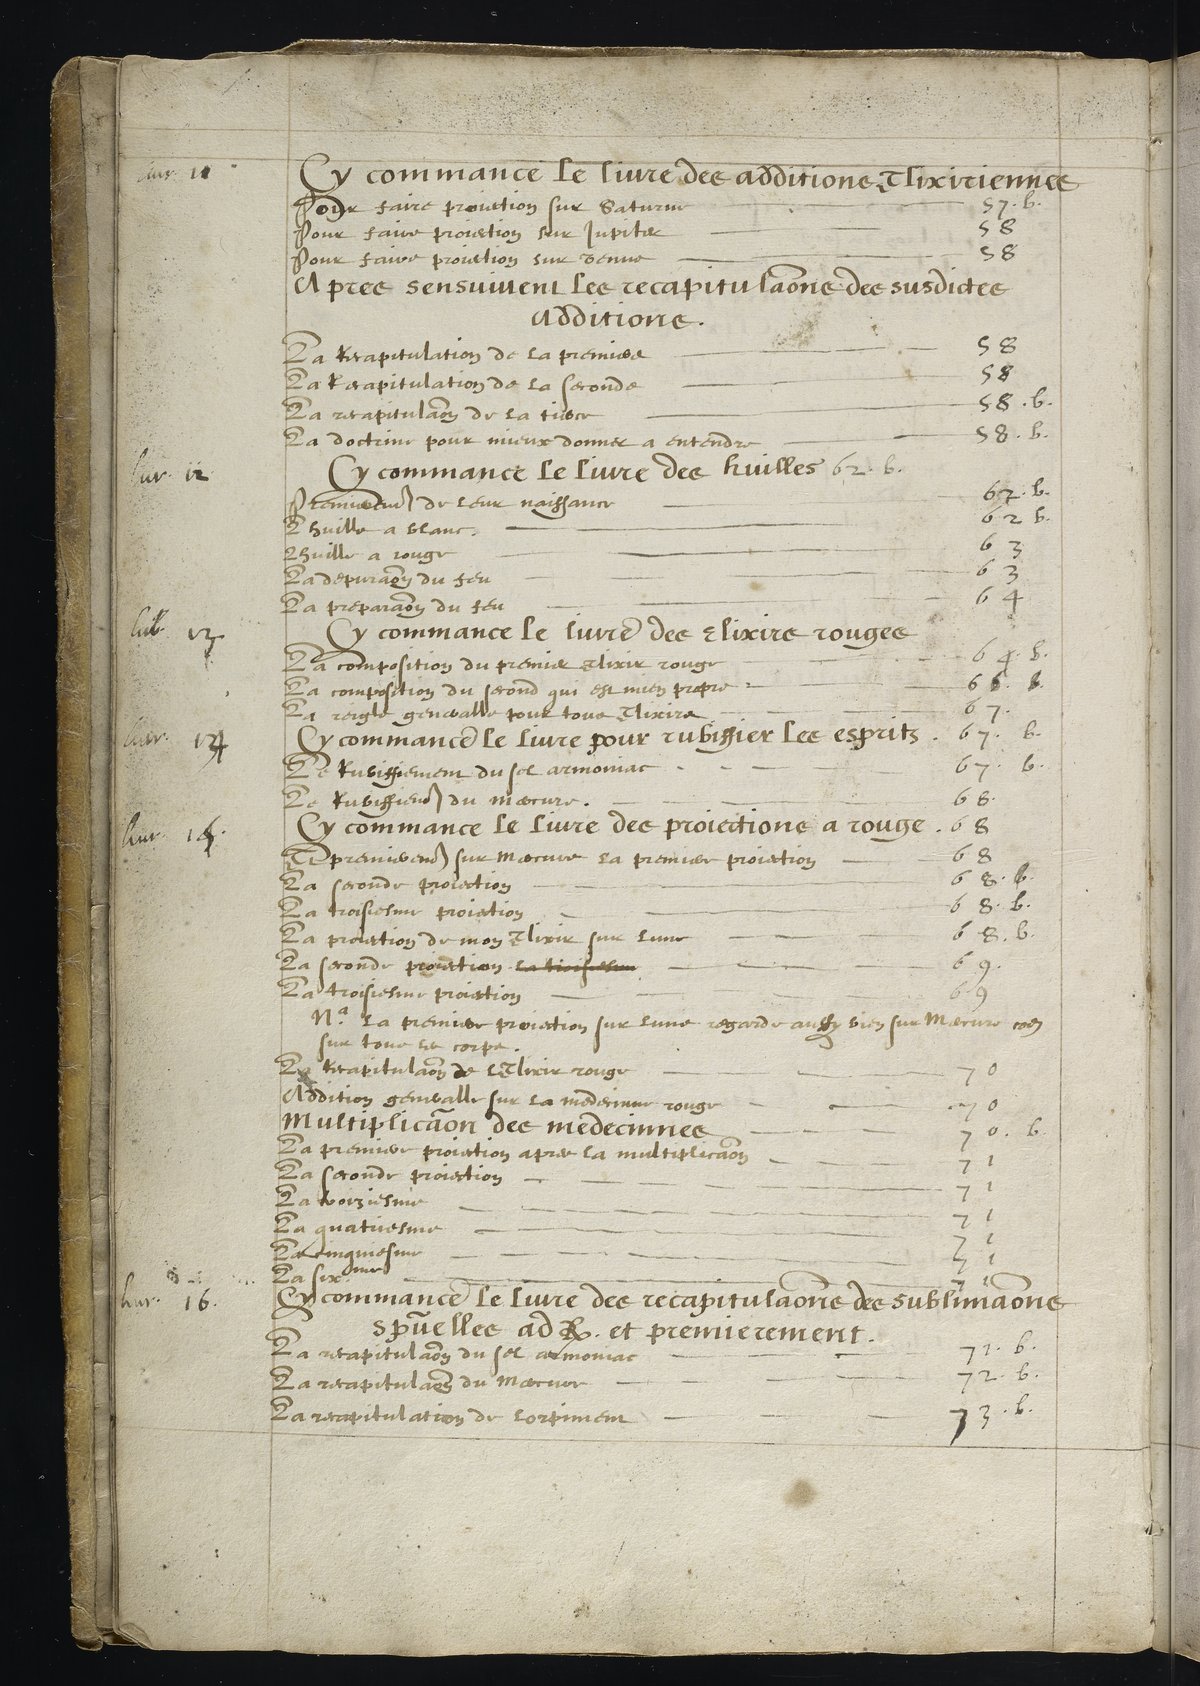 liur. 11 Cy commance le liure des additions Elixiriennes
Pour faire proiection sur Saturne 57. b.
Pour faire proiection sur Jupiter 58
Pour faire proiection sur Venus 58
Apres sensuiuent les recapitulaōns des susdictes
additions.
La Recapitulation de la premiere 58
La Recapitulation de la seconde 58
La recapitulaōn de la tierce 58. b.
La doctrine pour mieux donner a entendre 58. b.
liur. 12 Cy commance le liure des huilles 62. b.
Premierem̄ de leur naissance 62. b.
Lhuille a blanc. 62 b.
Lhuille a rouge 63
La depuraōn du feu 63
La preparaōn du feu 64
liur. 13 Cy commance le liure des Elixirs rouges
La composition du premier Elixir rouge 64. b.
La composition du second qui est mien propre 66. b.
La reigle generalle pour tous Elixirs 67.
liur. 14 Cy commance le liure pour rubiffier les esprits. 67. b.
Le Rubiffiement du sel armoniac 67. b.
Le Rubiffiem̄ du mercure. 68.
liur. 15. Cy commance le liure des proiections a rouge. 68
Et premierem̄ sur mercure la premiere proiection 68
La seconde proiection 68. b.
La troisiesme proiection 68. b.
La proiection de mon Elixir sur lune 68. b.
La seconde proiection la troisiesme 69.
La troisiesme proiection 69
Nᵃ. la premiere proiection sur lune regarde aussy bien sur mercure com̄
sur tous les corps.
La Recapitulaōn de lElixir rouge 70
Addition generalle sur la medecinne rouge 70
Multiplicaōn des medecinnes 70. b.
La premiere proiection apres la multiplicaōn 71
La seconde proiection 71
La troiziesme 71
La quatriesme 71
La cinquiesme 71
La six.ᵐᵉ 71
liur. 16. Cy commance le liure des recapitulaōns des sublimaōns
spūelles ad R. et premierement.
La recapitulaōn du sel armoniac 71. b.
La recapitulaōn du mercure 72. b.
La recapitulation de lorpiment 73. b.